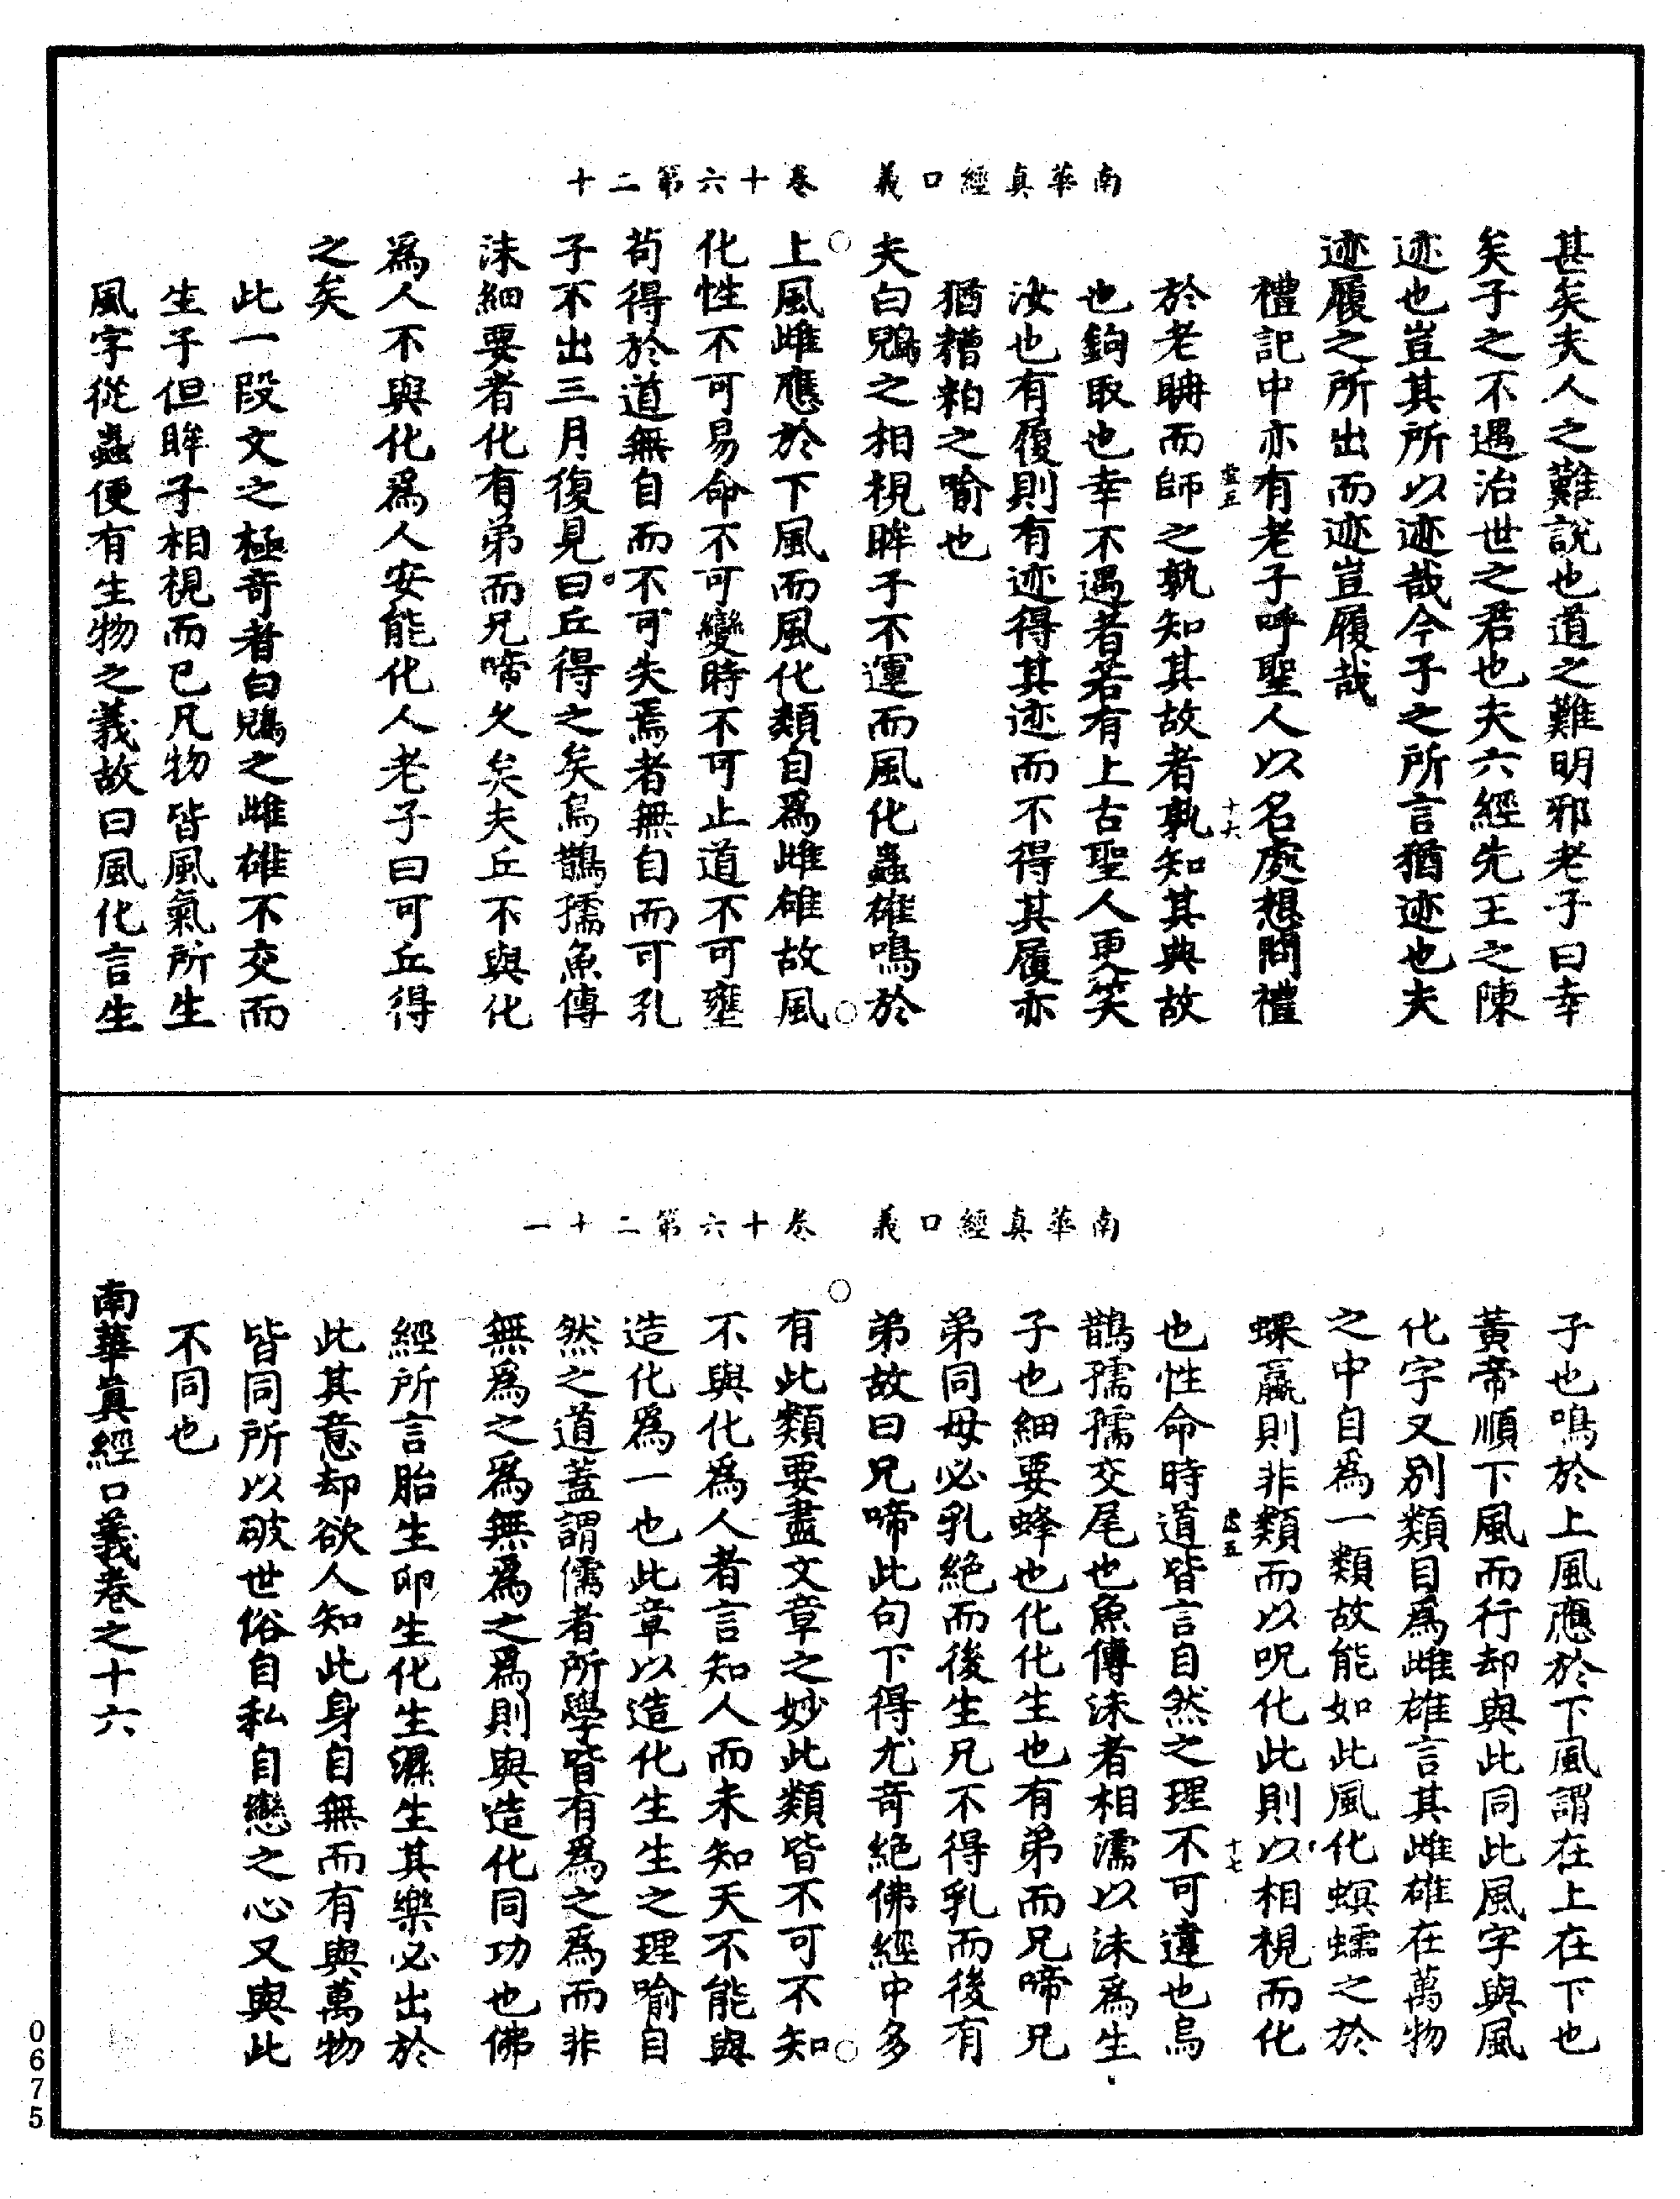 南華真經口義　卷十六第二十
甚矣夫人之難說也道之難明邪老子曰幸
矣子之不遇治世之君也夫六經先王之陳
迹也豈其所以迹哉今子之所言猶迹也夫
迹履之所出而迹豈履哉
禮記中亦有老子呼聖人以名處想問禮
十六
於老聃而師之孰知其故者孰知其典故
也鉤取也幸不遇者若有上古聖人更笑
汝也有履則有迹得其迹而不得其履亦
猶糟粕之喻也
夫白鶂之相視眸子不運而風化蟲雄鳴於
上風雌應於下風而風化類自爲雌雄故風
化性不可易命不可變時不可止道不可壅
苟得於道無自而不可失焉者無自而可孔
子不出三月復見曰丘得之矣烏鵲孺魚傳
沫細要者化有弟而兄啼久矣夫丘不與化
爲人不與化爲人安能化人老子曰可丘得
之矣
此一段文之極奇者白鶂之雌雄不交而
生子但眸子相視而已凡物皆風氣所生
風字從蟲便有生物之義故曰風化言生
南華真經口義　卷十六第二十一
子也鳴於上風應於下風謂在上在下也
黃帝順下風而行却與此同此風字與風
化字又別類自爲雌雄言其雌雄在萬物
之中自爲一類故能如此風化螟蠕之於
蜾蠃則非類而以呪化此則以相視而化
十七
也性命時道皆言自然之理不可違也烏
鵲孺孺交尾也魚傳沫者相濡以沫爲生
子也細要蜂也化化生也有弟而兄啼兄
弟同母必乳絕而後生兄不得乳而後有
弟故曰兄啼此句下得尤奇絕佛經中多
有此類要盡文章之妙此類皆不可不知
不與化爲人者言知人而未知天不能與
造化爲一也此章以造化生生之理喻自
然之道蓋謂儒者所學皆有爲之爲而非
無爲之爲無爲之爲則與造化同功也佛
經所言胎生卵生化生濕生其樂必出於
此其意却欲人知此身自無而有與萬物
皆同所以破世俗自私自戀之心又與此
不同也
南華眞經口義卷之十六
0675